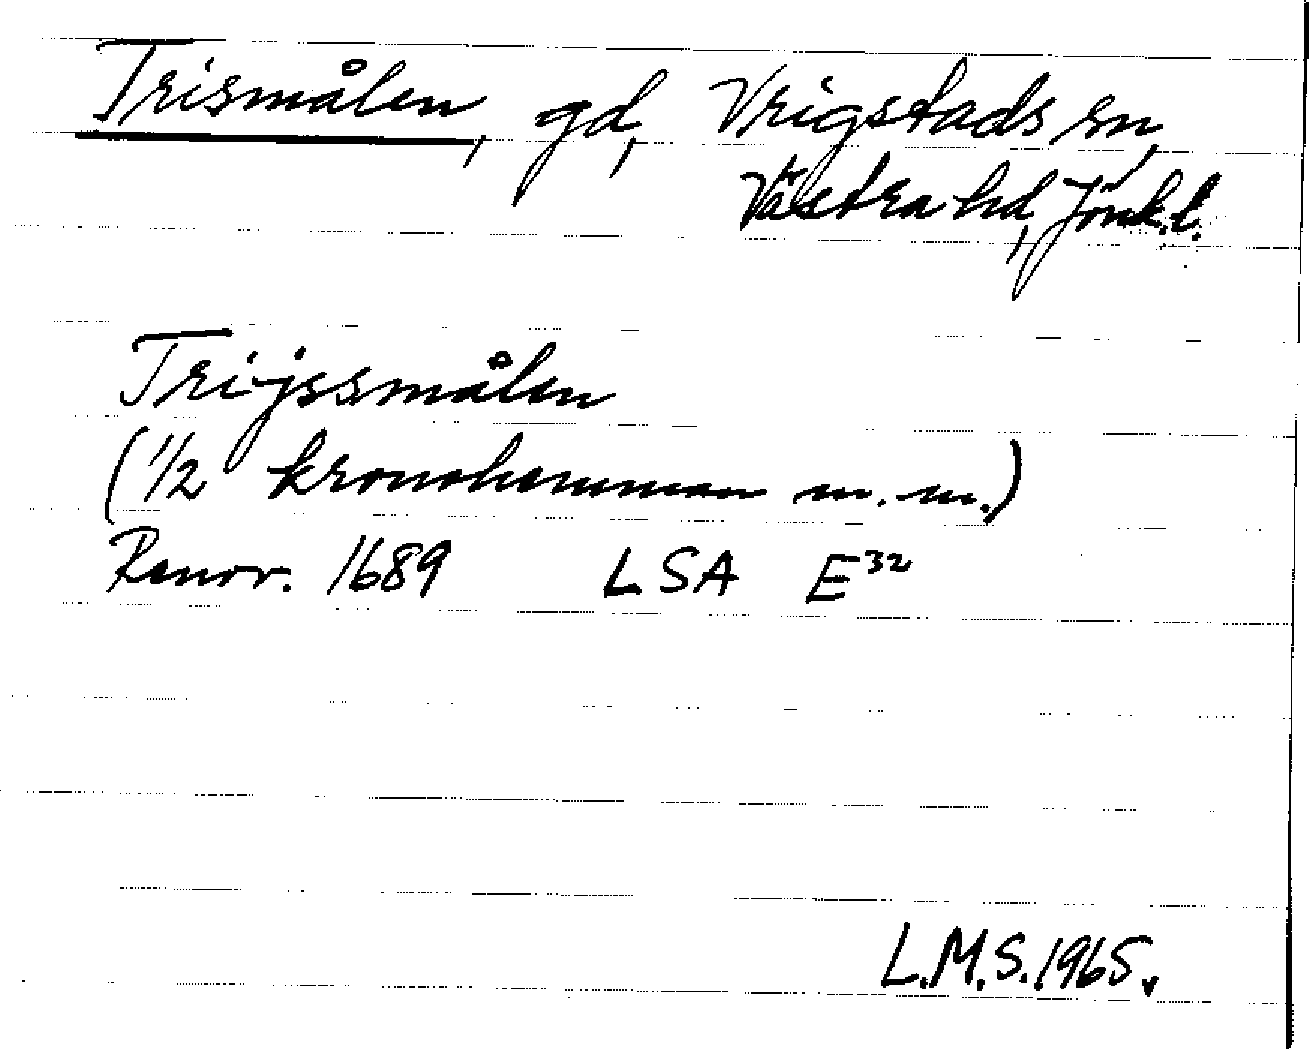 Trismålen, gd, Vrigstads sn,
Västra hd, Jönk.l.
Trijssmålen
(1/2 kronohemman m.m.)
Renov. 1689 LSA E³²
L.M.S. 1965.